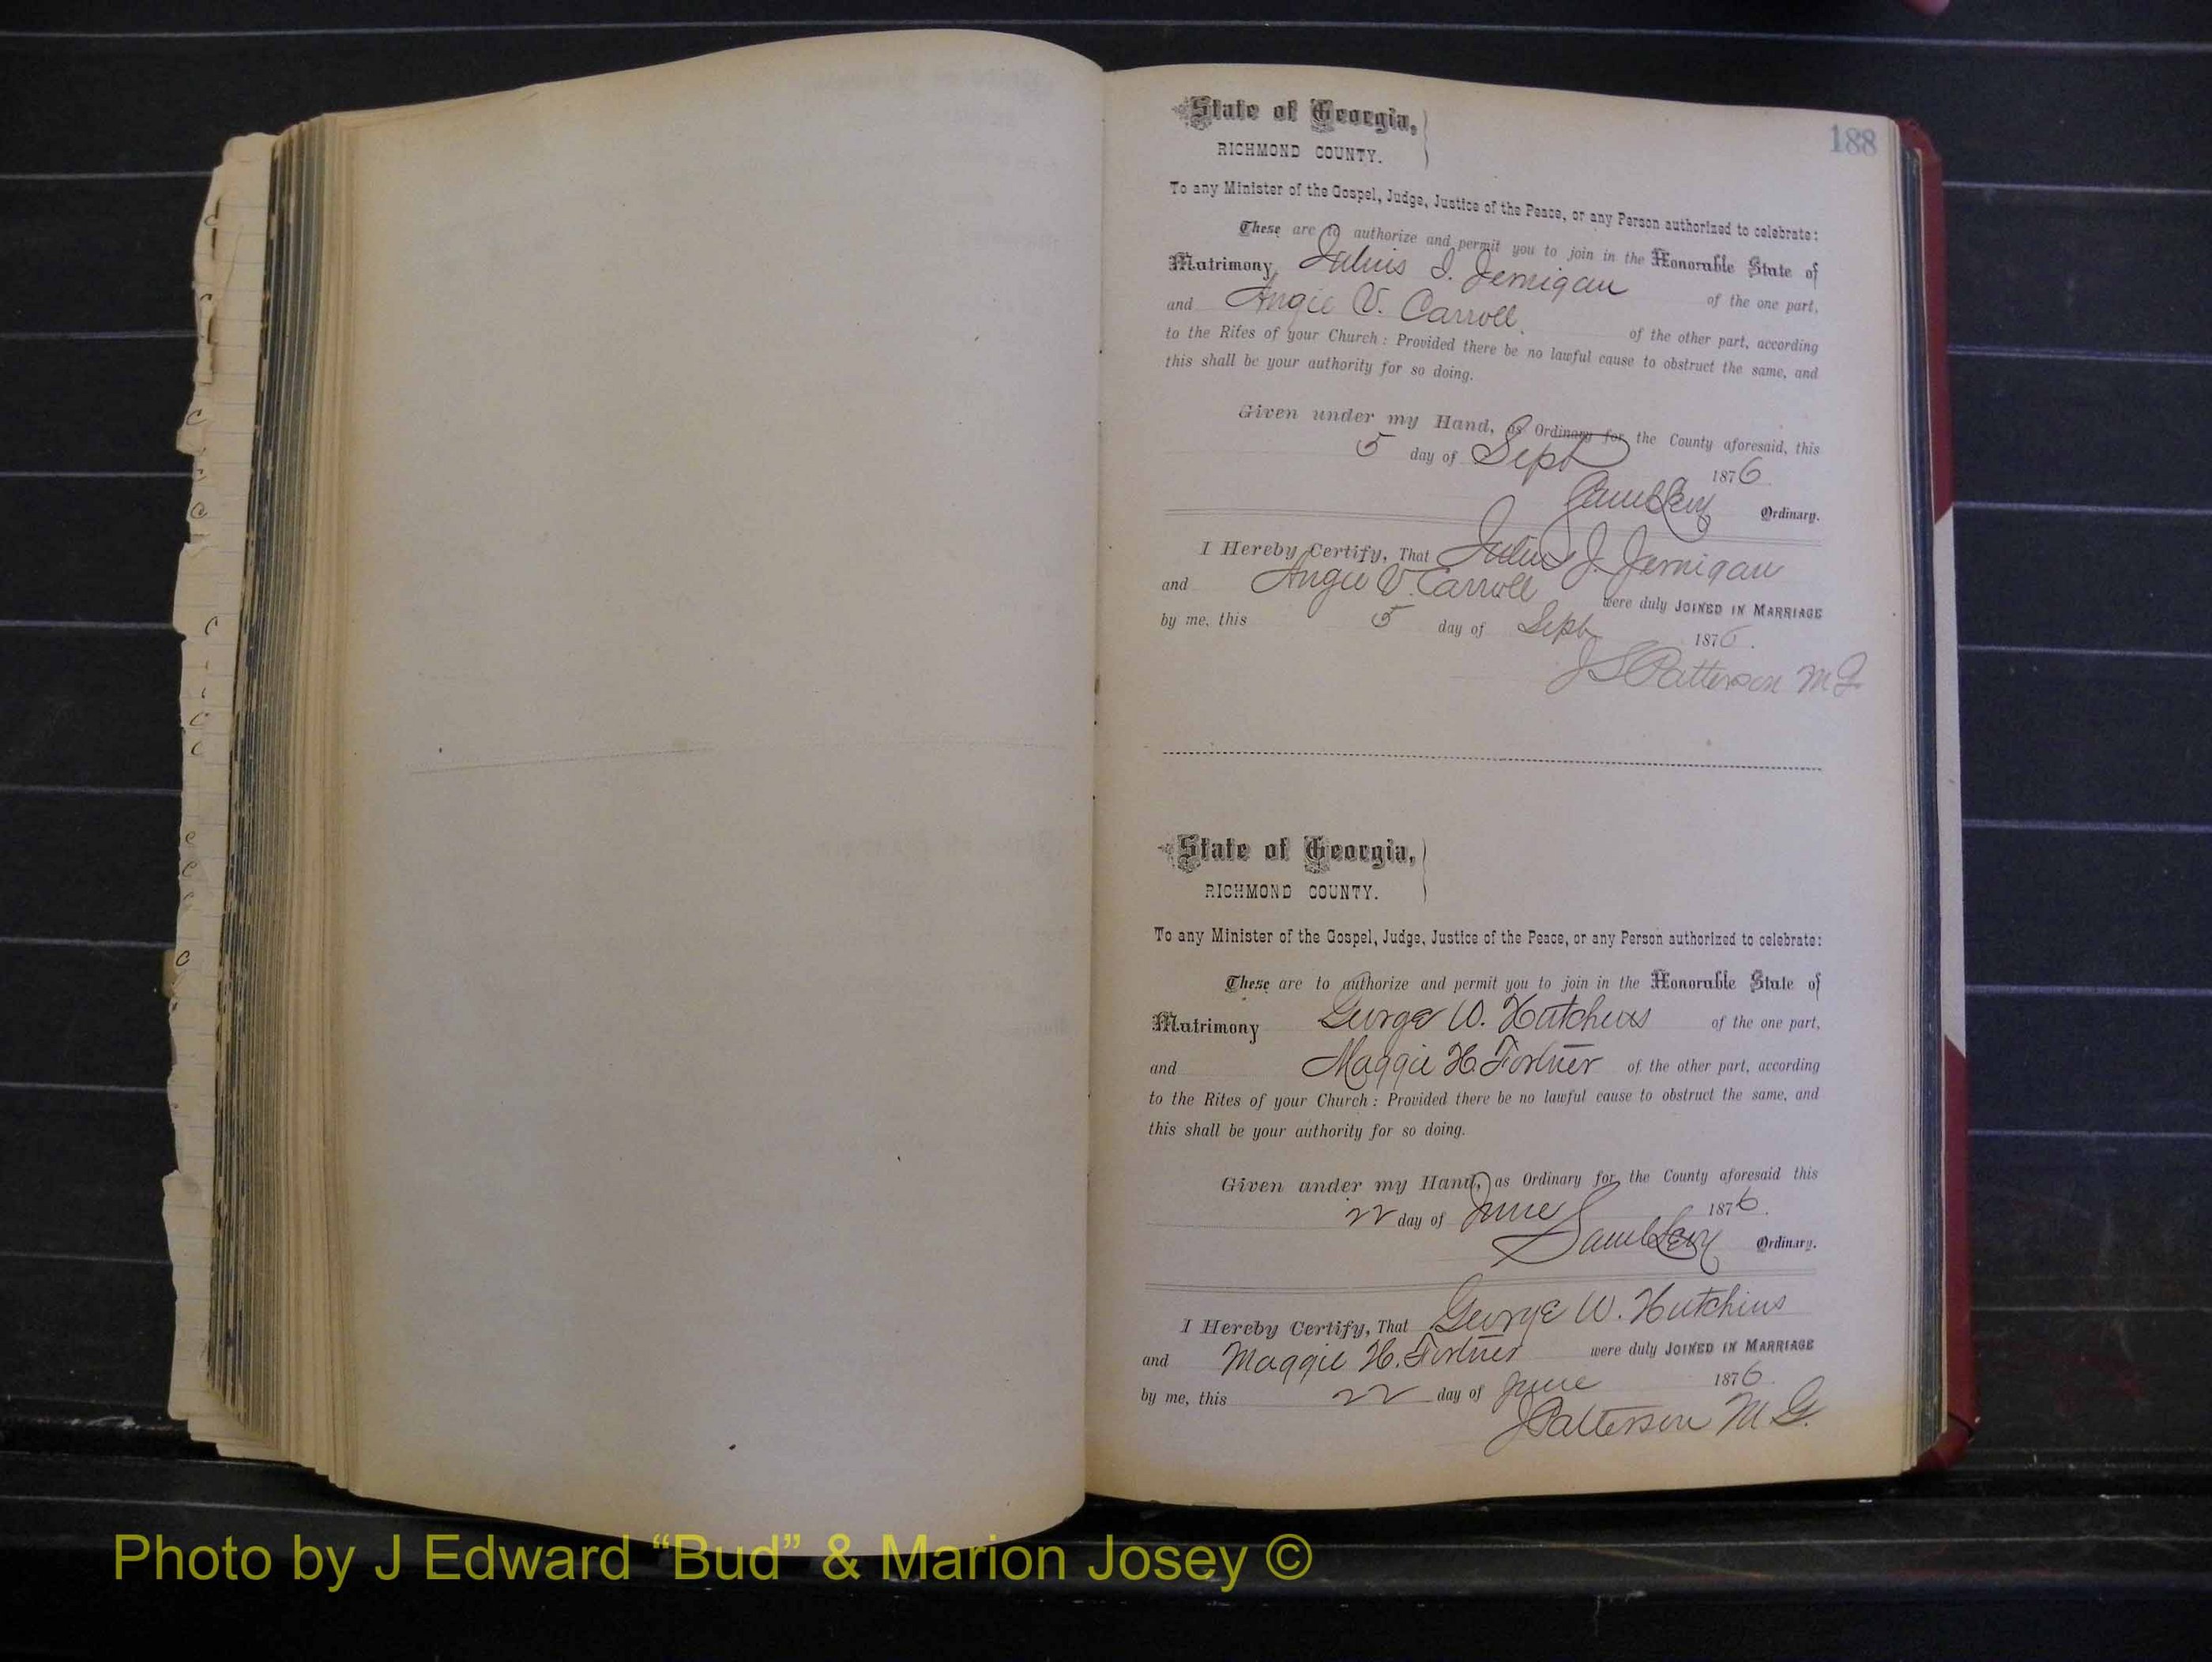 188
State of Georgia,
RICHMOND COUNTY.
To any Minister of the Gospel, Judge, Justice of the Peace, or any Person authorized to celebrate:
These are to authorize and permit you to join in the Honorable State of
Matrimony, Julius J. Jernigan of the one part,
and Angie V. Carroll of the other part, according
to the Rites of your Church: Provided there be no lawful cause to obstruct the same, and
this shall be your authority for so doing.
Given under my Hand, as Ordinary for the County aforesaid, this
5 day of Sept 1876
Saml Levy Ordinary.
I Hereby Certify, That Julius J. Jernigan
and Angie V. Carroll were duly JOINED IN MARRIAGE
by me, this 5 day of Sept 1876.
J S Patterson M G
State of Georgia,
RICHMOND COUNTY.
To any Minister of the Gospel, Judge, Justice of the Peace, or any Person authorized to celebrate:
These are to authorize and permit you to join in the Honorable State of
Matrimony George W. Hutchins of the one part,
and Maggie H. Fortner of the other part, according
to the Rites of your Church: Provided there be no lawful cause to obstruct the same, and
this shall be your authority for so doing.
Given under my Hand, as Ordinary for the County aforesaid this
22 day of June 1876.
Saml Levy Ordinary.
I Hereby Certify, That George W. Hutchins
and Maggie H. Fortner were duly JOINED IN MARRIAGE
by me, this 22 day of June 1876.
J Patterson M. G.
Photo by J Edward “Bud” & Marion Josey ©